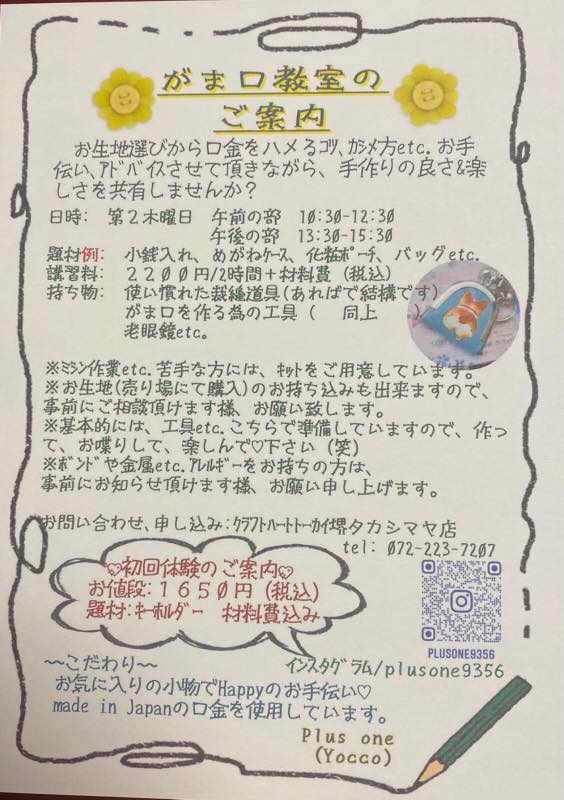 がま口教室の
ご案内
お生地選びから口金をハメるｺﾂ、ｶｼﾒ方etc. お手
伝い、ｱﾄﾞﾊﾞｲｽさせて頂きながら、手作りの良さ&楽
しさを共有しませんか？
日時： 第２木曜日 午前の部 10:30-12:30
午後の部 13:30-15:30
題材例： 小銭入れ、めがねｹｰｽ、化粧ﾎﾟｰﾁ、バッグetc.
講習料： ２２００円/2時間＋材料費（税込）
持ち物： 使い慣れた裁縫道具(あればで結構です)
がま口を作る為の工具（ 同上 ）
老眼鏡etc.
※ﾐｼﾝ作業etc. 苦手な方には、ｷｯﾄをご用意しています。
※お生地(売り場にて購入)のお持ち込みも出来ますので、
事前にご相談頂けます様、お願い致します。
※基本的には、工具etc. こちらで準備していますので、作っ
て、お喋りして、楽しんで♡下さい（笑）
※ﾎﾞﾝﾄﾞや金属etc. ｱﾚﾙｷﾞｰをお持ちの方は、
事前にお知らせ頂けます様、お願い申し上げます。
お問い合わせ、申し込み：ｸﾗﾌﾄﾊｰﾄﾄｰｶｲ堺タカシマヤ店
tel： 072-223-7207
♡初回体験のご案内♡
お値段：１６５０円（税込）
題材：ｷｰﾎﾙﾀﾞｰ 材料費込み
PLUSONE9356
インスタグラム/plusone9356
～～こだわり～～
お気に入りの小物でHappyのお手伝い♡
made in Japanの口金を使用しています。
Plus one
(Yocco)